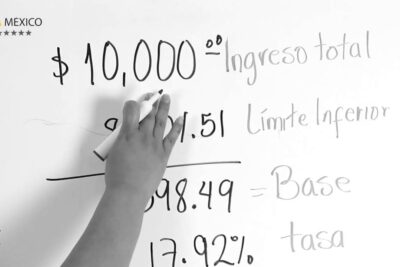 MEXICO
$ 10,000 00 Ingreso total
1.51 Límite Inferior
98.49 = Base
17.92% tasa